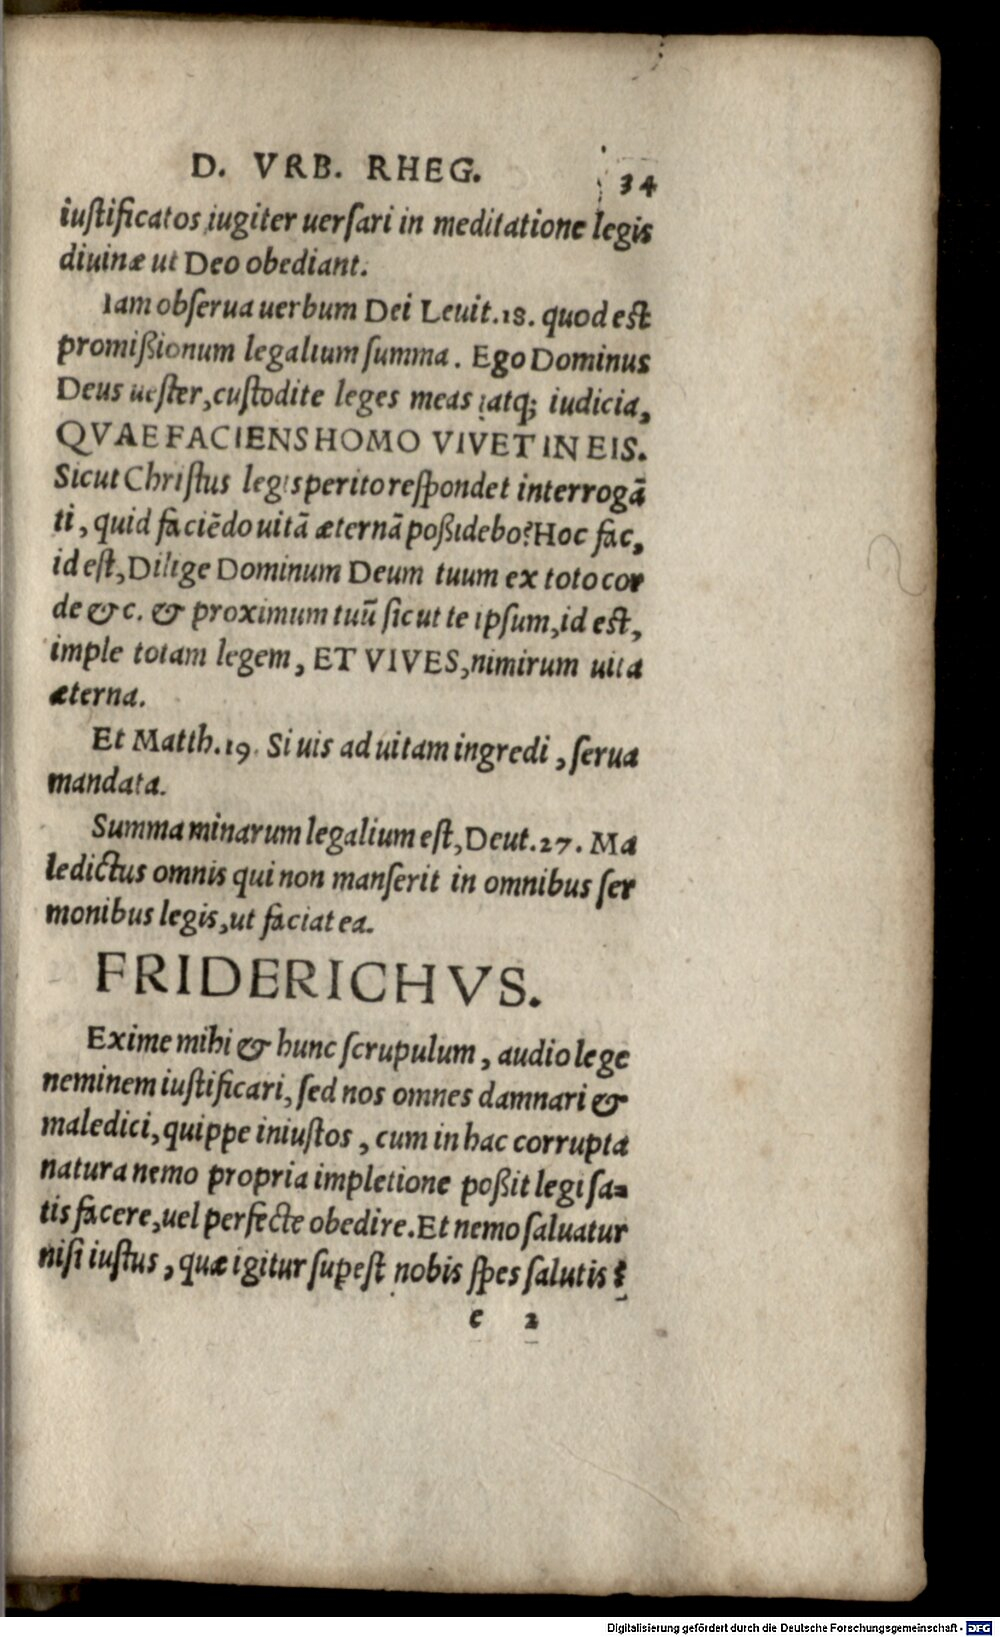 D. VRB. RHEG.
34
iuſtificatos iugiter uerſari in meditatione legis
diuinæ ut Deo obediant.
Iam obſerua uerbum Dei Leuit.18. quod est
promißionum legalium ſumma. Ego Dominus
Deus ueſter, cuſtodite leges meas, atq; iudicia,
QVAE FACIENS HOMO VIVET IN EIS.
Sicut Chriſtus legisperito reſpondet interrogā
ti, quid faciēdo uitā æternā poßidebo? Hoc fac,
id eſt, Dilige Dominum Deum tuum ex toto cor
de & c. & proximum tuū ſicut te ipſum, id eſt,
imple totam legem, ET VIVES, nimirum uita
æterna.
Et Matth.19. Si uis ad uitam ingredi, ſerua
mandata.
Summa minarum legalium eſt, Deut.27. Ma
ledictus omnis qui non manſerit in omnibus ſer
monibus legis, ut faciat ea.
FRIDERICHVS.
Exime mihi & hunc ſcrupulum, audio lege
neminem iuſtificari, ſed nos omnes damnari &
maledici, quippe iniuſtos, cum in hac corrupta
natura nemo propria impletione poßit legi ſa=
tis facere, uel perfecte obedire. Et nemo ſaluatur
niſi iuſtus, quæ igitur ſupeſt nobis ſpes ſalutis?
e 2
Digitalisierung gefördert durch die Deutsche Forschungsgemeinschaft - DFG